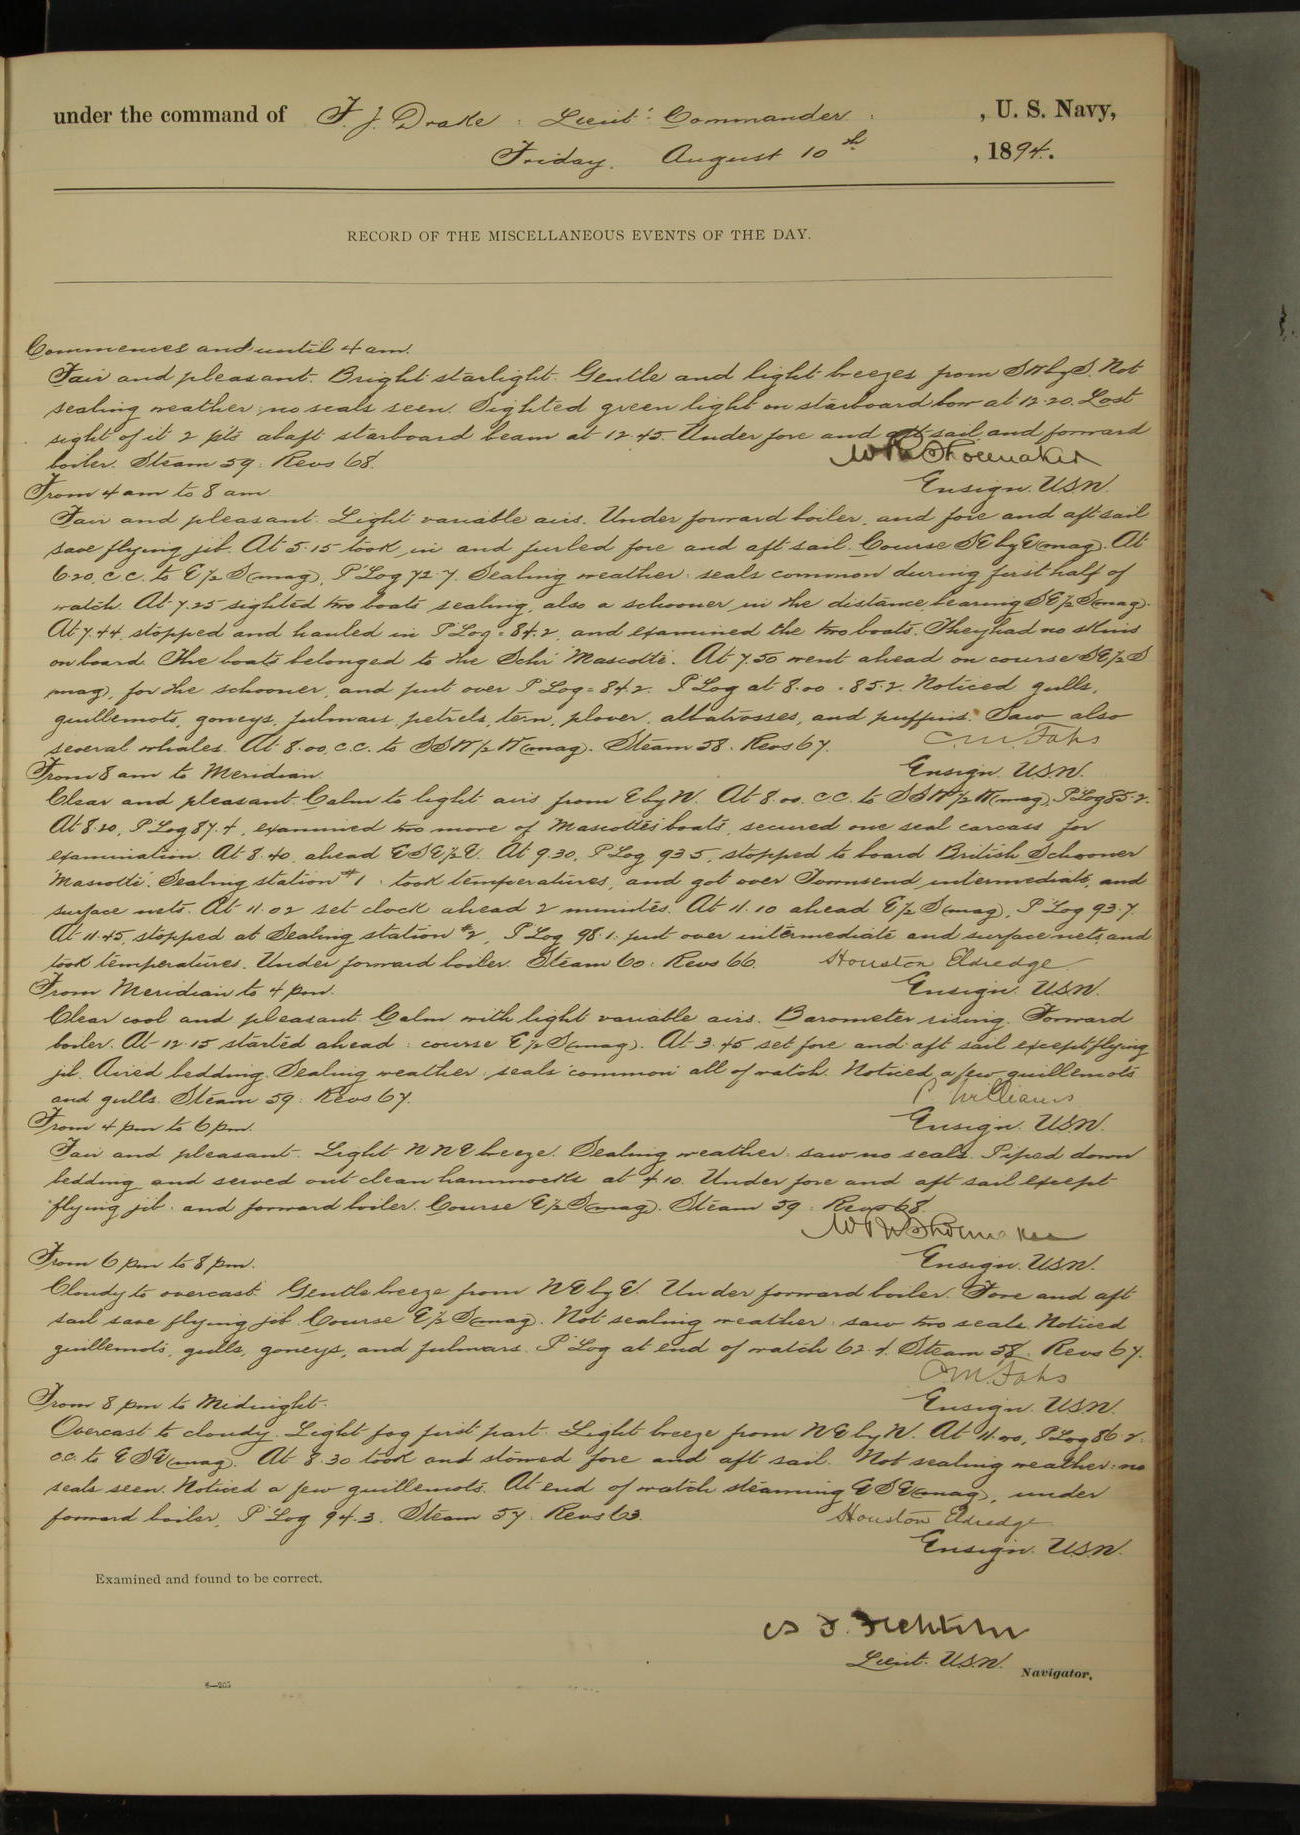 under the command of F. J. Drake : Lieut. Commander : , U. S. Navy,
Friday. August 10th , 1894.
RECORD OF THE MISCELLANEOUS EVENTS OF THE DAY.
Commences and until 4 am.
Fair and pleasant. Bright starlight. Gentle and light breezes from SW by S. Not
sealing weather; no seals seen. Sighted green light on starboard bow at 12.20. Lost
sight of it 2 pts abaft starboard beam at 12.45. Under fore and aft sail and forward
boiler. Steam 59 : Revs 68.
W R Shoemaker
Ensign. USN.
From 4 am to 8 am
Fair and pleasant. Light variable airs. Under forward boiler, and fore and aft sail
save flying jib. At 5.15 took in and furled fore and aft sail. Course SE by E (mag). At
6.20, c c. to E 1/2 S (mag), P Log 72.7. Sealing weather : seals common during first half of
watch. At 7.25 sighted two boats sealing, also a schooner in the distance, bearing SE 1/2 S (mag).
At 7.44, stopped and hauled in P Log = 84.2, and examined the two boats. They had no skins
on board. The boats belonged to the Schr "Mascotte". At 7.50 went ahead on course SE 1/2 S
(mag), for the schooner, and put over P Log = 84.2. P Log at 8.00 = 85.2. Noticed gulls,
guillemots, goneys, fulmars, petrels, tern, plover, albatrosses, and puffins. Saw also
several whales. At 8.00, c.c. to SSW 1/2 W (mag). Steam 58. Revs 67.
C. M. Fahs
Ensign. USN.
From 8 am to Meridian.
Clear and pleasant. Calm to light airs from E by N. At 8.00. c c. to SSW 1/2 W (mag), P Log 85.2.
At 8.20, P Log 87.4, examined two more of Mascotte's boats, secured one seal carcass for
examination. At 8.40, ahead ESE 1/2 E. At 9.30, P Log 93.5, stopped to board British Schooner
"Mascotte". Sealing station #1 : took temperatures, and got over Townsend intermediate, and
surface nets. At 11.02 set clock ahead 2 minutes. At 11.10 ahead E 1/2 S (mag), P Log 93.7.
At 11.45, stopped at Sealing station #2, P Log 98.1. put over intermediate and surface nets, and
took temperatures. Under forward boiler. Steam 60 : Revs 66.
Houston Eldredge
Ensign. USN.
From Meridian to 4 pm.
Clear cool and pleasant. Calm with light variable airs. Barometer rising. Forward
boiler. At 12.15 started ahead : course E 1/2 S (mag). At 3.45 set fore and aft sail except flying
jib. Aired bedding. Sealing weather : seals "common" all of watch. Noticed a few guillemots
and gulls. Steam 59 : Revs 67.
P. Williams
Ensign. USN.
From 4 pm to 6 pm.
Fair and pleasant. Light NNE breeze. Sealing weather : saw no seals. Piped down
bedding and served out clean hammocks at 4.10. Under fore and aft sail except
flying jib : and forward boiler. Course E 1/2 S (mag). Steam 59 : Revs 68.
W R Shoemaker
Ensign. USN.
From 6 pm to 8 pm.
Cloudy to overcast. Gentle breeze from NE by E. Under forward boiler. Fore and aft
sail save flying jib. Course E 1/2 S (mag). Not sealing weather : saw two seals. Noticed
guillemots, gulls, goneys, and fulmars. P Log at end of watch 62.4. Steam 58. Revs 67.
C. M. Fahs
Ensign. USN.
From 8 pm to Midnight.
Overcast to cloudy. Light fog first part. Light breeze from NE by N. At 11.00, P Log 86.2.
c.c. to ESE (mag). At 8.30 took and stowed fore and aft sail. Not sealing weather : no
seals seen. Noticed a few guillemots. At end of watch steaming ESE (mag), under
forward boiler, P Log 94.3. Steam 57. Revs 63.
Houston Eldredge
Ensign. USN.
Examined and found to be correct.
Lieut. U.S.N. Navigator.
6—205